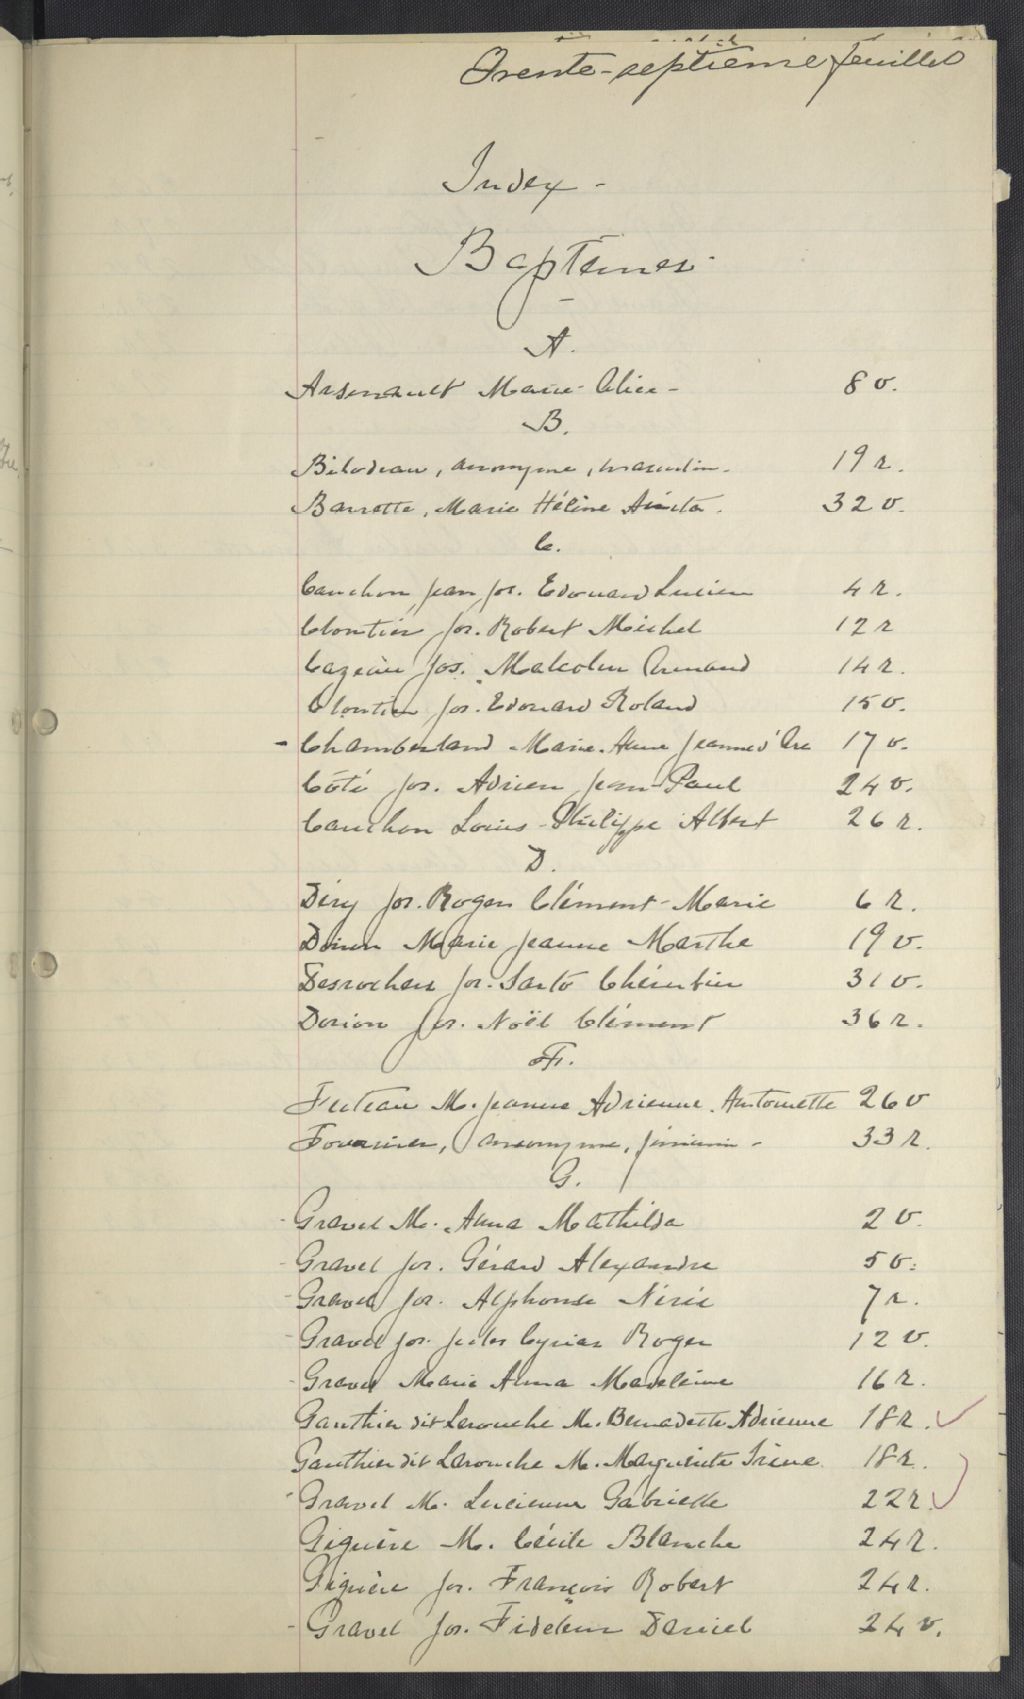 Trente-septième feuillet
Index -
Baptêmes
A.
Arsenault Marie-Alice - 8 v.
B.
Bilodeau, anonyme, masculin. 19 r.
Barrette, Marie Hélène Anita. 32 v.
C.
Cauchon, Jean Jos. Edouard Lucien 4 r.
Cloutier Jos. Robert Michel 12 r
Cazeau Jos. Malcolm Armand 14 r.
Cloutier Jos. Edouard Roland 15 v.
- Chamberland Marie-Anne Jeanne d'Arc 17 v.
Côté Jos. Adrien Jean-Paul 24 v.
Cauchon Louis-Philippe Albert 26 r.
D.
Déry Jos. Roger Clément-Marie 6 r.
Marie Jeanne Marthe 19 v.
Desrochers Jos. Sarto Chérubin 31 v.
Dorion Jos. Noël Clément 36 r.
F.
Futeau M. Jeanne Adrienne. Antoinette 26 v
Fournier, anonyme, féminin - 33 r.
G.
- Gravel M. Anna Mathilda 2 v.
- Gravel Jos. Gérard Alexandre 5 v.
- Gravel Jos. Alphonse Nérée 7 r.
- Gravel Jos. Jules Cyrias Roger 12 v.
- Gravel Marie Anna Madeleine 16 r.
Gauthier dit Larouche M. Bernadette Adrienne 18 r.
Gauthier dit Larouche M. Marguerite Irène 18 r.
- Gravel M. Lucienne Gabrielle 22 r.
Giguère M. Cécile Blanche 24 r.
Giguère Jos. François Robert 24 r.
- Gravel Jos. Fidelem Daniel 24 v.